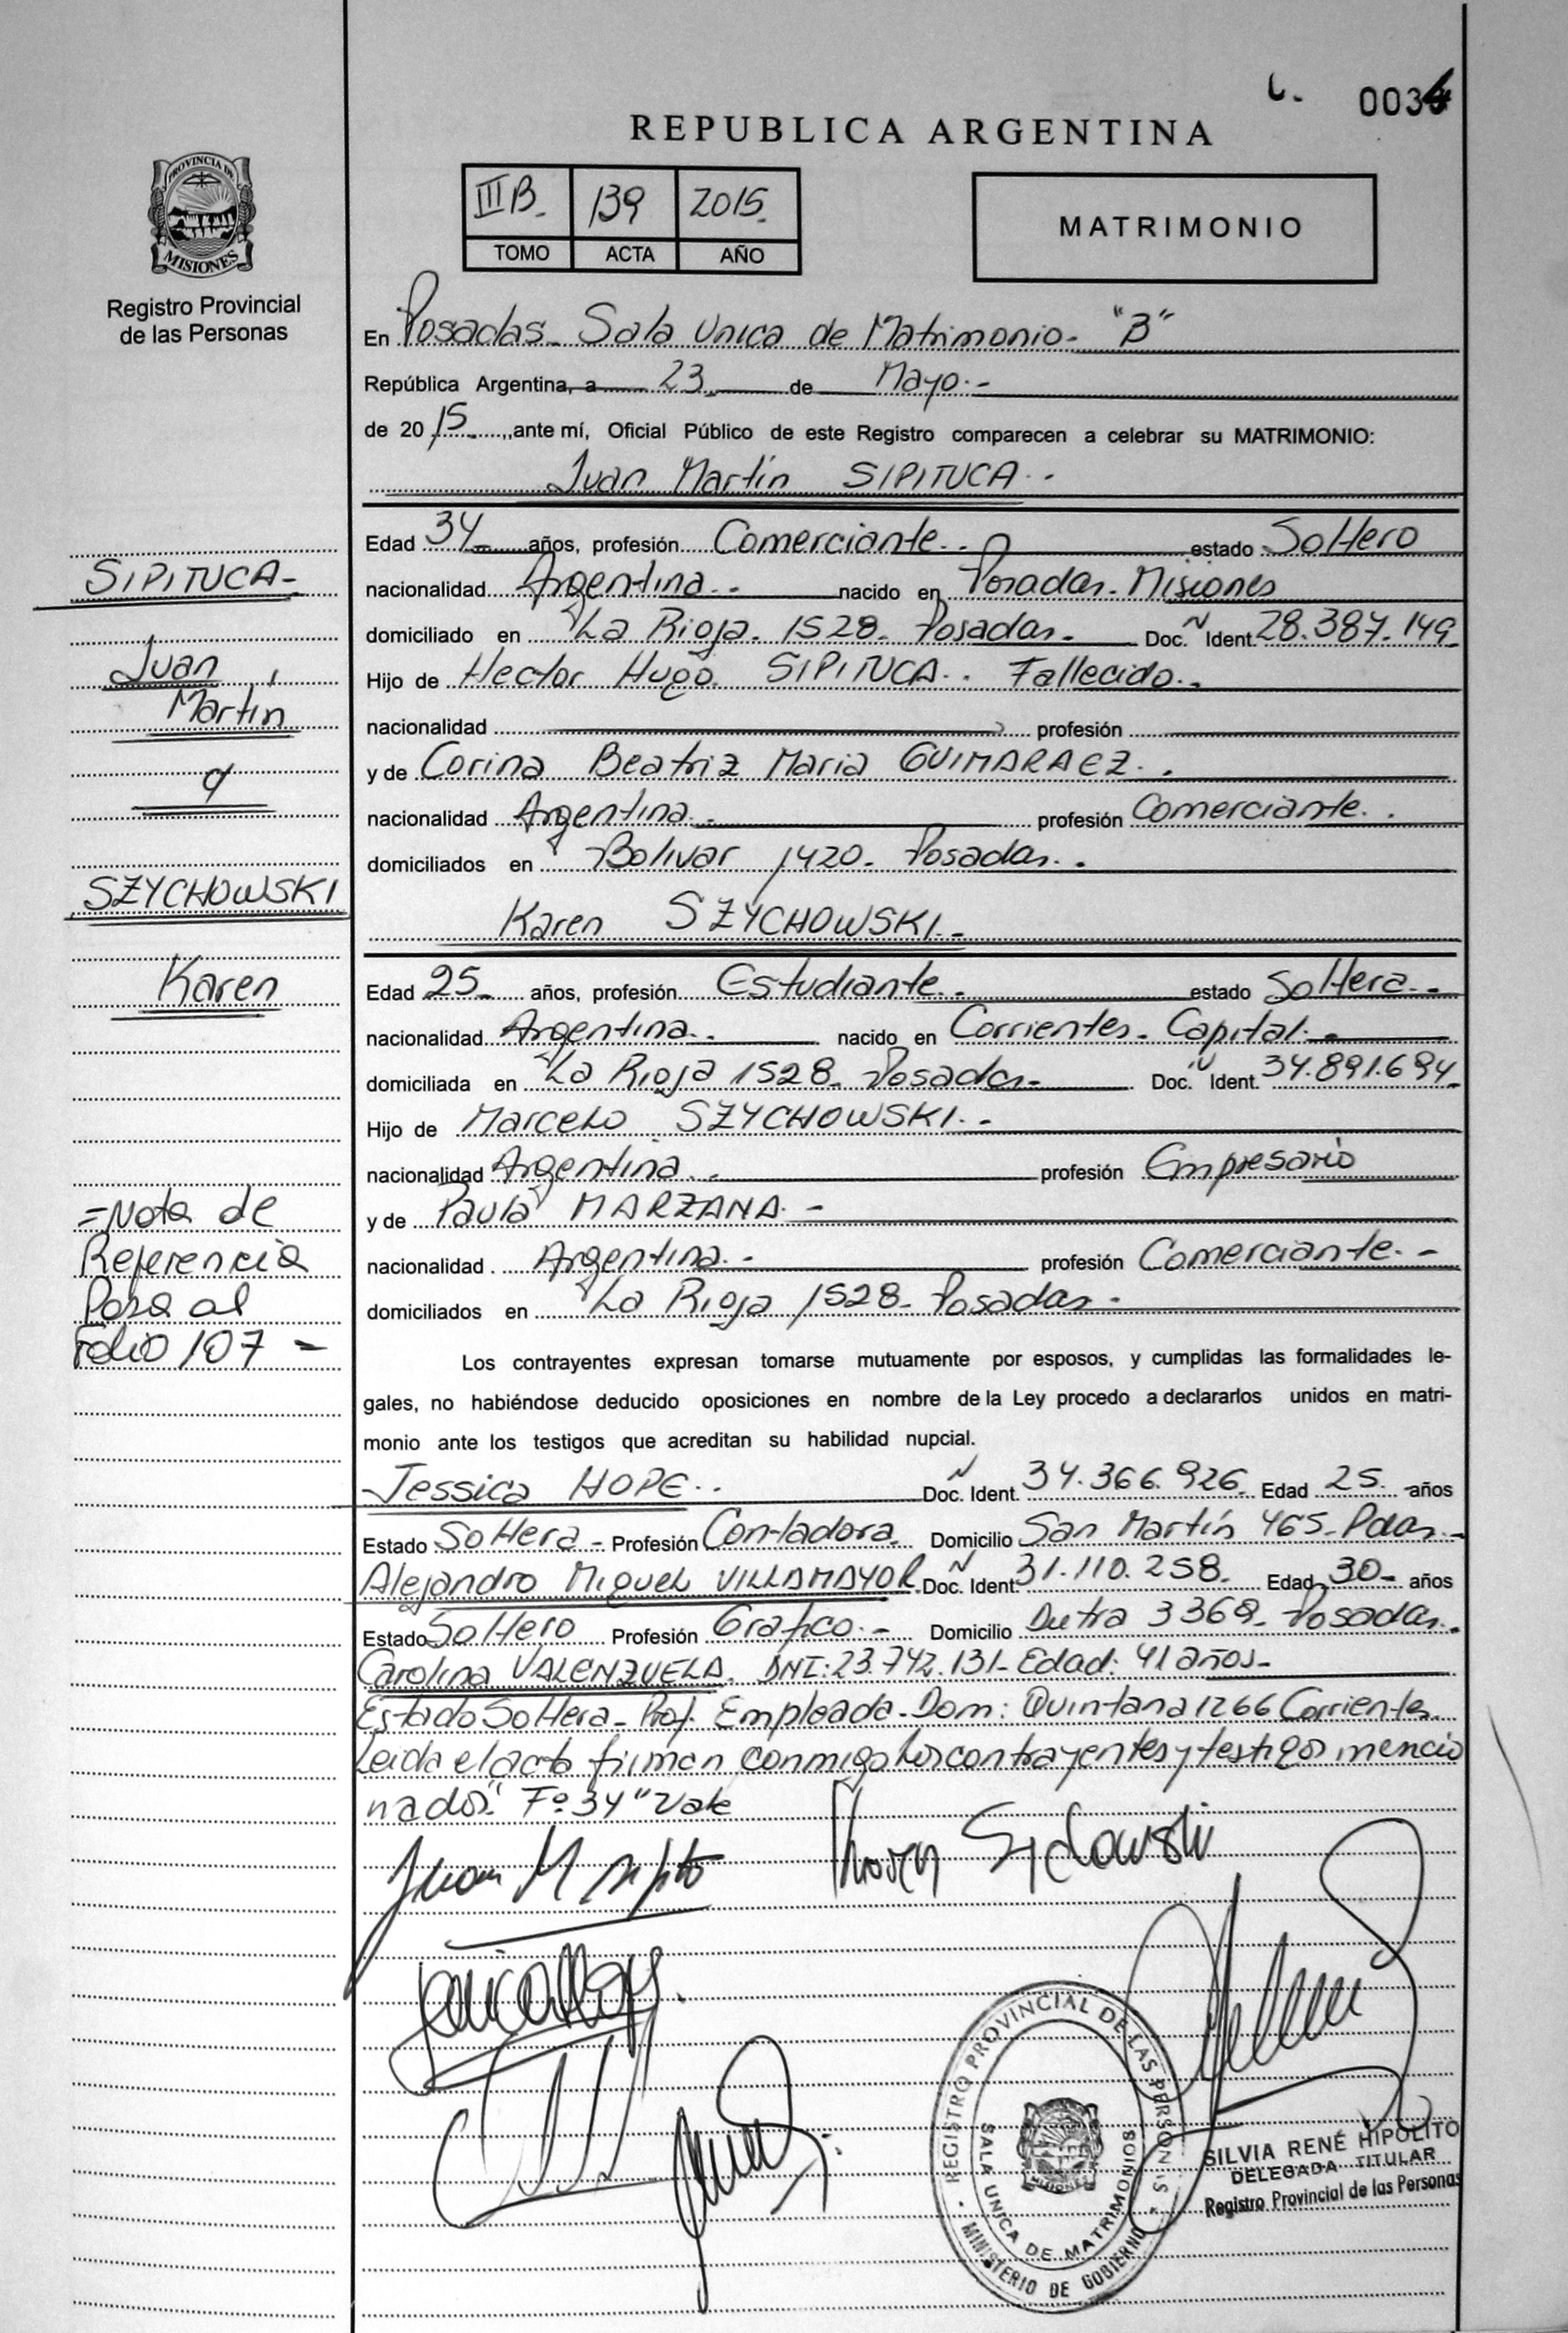 0034
REPUBLICA ARGENTINA
PROVINCIA DE
MISIONES
Registro Provincial
de las Personas
III B. 139 2015.
TOMO ACTA AÑO
MATRIMONIO
En Posadas- Sala Unica de Matrimonio- "B"
República Argentina, a 23 de Mayo.-
de 20 15 ,ante mí, Oficial Público de este Registro comparecen a celebrar su MATRIMONIO:
Juan Martín SIPITUCA.-
Edad 34 años, profesión Comerciante.- estado Soltero
nacionalidad Argentina.- nacido en Posadas- Misiones
domiciliado en La Rioja- 1528- Posadas- Doc. Ident. 28.387.149
Hijo de Hector Hugo SIPITUCA.- Fallecido.-
nacionalidad profesión
y de Corina Beatriz Maria GUIMARAEZ.-
nacionalidad Argentina.- profesión Comerciante.-
domiciliados en Bolivar 1420- Posadas.-
Karen SZYCHOWSKI.-
Edad 25 años, profesión Estudiante.- estado Soltera.-
nacionalidad Argentina.- nacido en Corrientes- Capital.-
domiciliada en La Rioja 1528- Posadas- Doc. Ident. 34.891.694
Hijo de Marcelo SZYCHOWSKI.-
nacionalidad Argentina.- profesión Empresario
y de Paula MARZANA.-
nacionalidad Argentina.- profesión Comerciante.-
domiciliados en La Rioja 1528- Posadas-
Los contrayentes expresan tomarse mutuamente por esposos, y cumplidas las formalidades le-
gales, no habiéndose deducido oposiciones en nombre de la Ley procedo a declararlos unidos en matri-
monio ante los testigos que acreditan su habilidad nupcial.
Jessica HOPE.- Doc. Ident. 34.366.926 Edad 25 años
Estado Soltera- Profesión Contadora Domicilio San Martín 465- Pdas.-
Alejandro Miguel VILLAMAYOR Doc. Ident. 31.110.258. Edad 30- años
Estado Soltero Profesión Grafico.- Domicilio Dutra 3368- Posadas.
Carolina VALENZUELA. DNI: 23.742.131- Edad: 41 años-
Estado Soltera- Prof. Empleada- Dom: Quintana 1266 Corrientes
Leida el acta firman conmigo los contrayentes y testigos mencio
nados." Fº 34" Vale
SIPITUCA-
Juan
Martín
y
SZYCHOWSKI
Karen
=Nota de
Referencia
Pasa al
Folio 107 -
REGISTRO PROVINCIAL DE LAS PERSONAS
SALA UNICA DE MATRIMONIOS
MINISTERIO DE GOBIERNO
MISIONES
SILVIA RENÉ HIPOLITO
DELEGADA TITULAR
Registro Provincial de las Personas